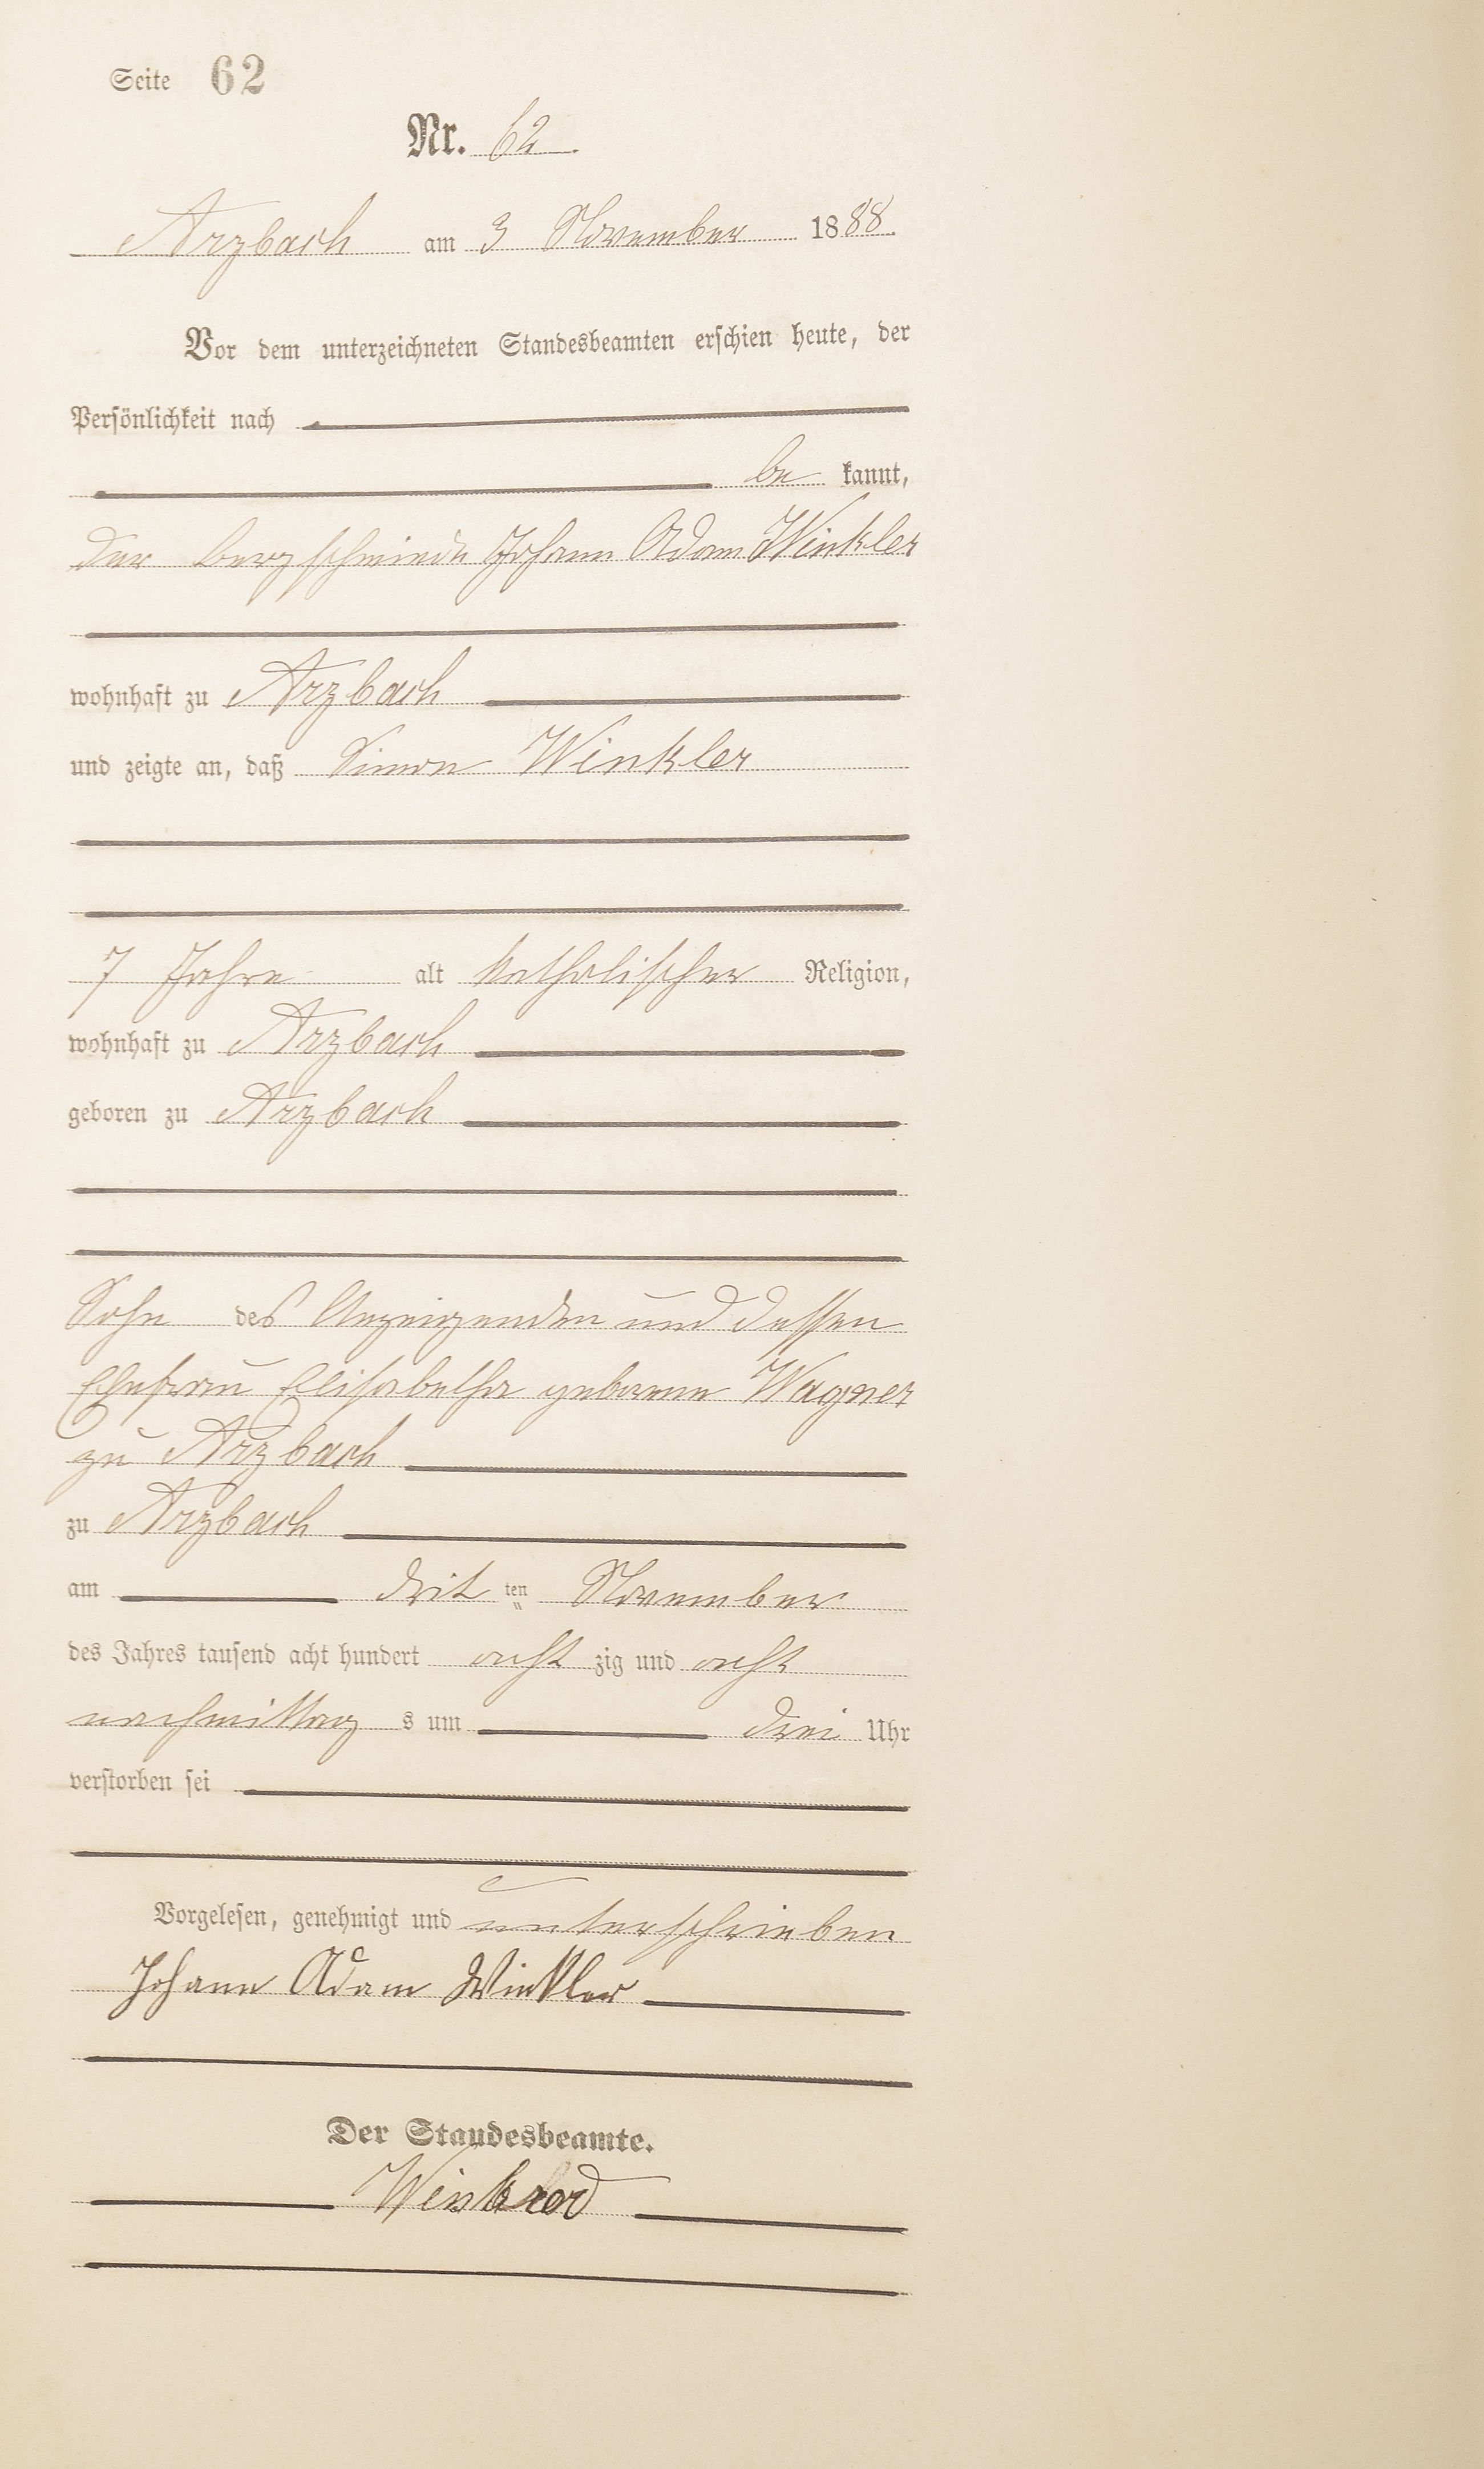 Seite 62
Nr. 62.
Arzbach am 3 November 1888.
Vor dem unterzeichneten Standesbeamten erschien heute, der
Persönlichkeit nach
be kannt,
der Bergschmiede Johann Adam Winkler
wohnhaft zu Arzbach
und zeigte an, daß Simon Winkler
7 Jahre alt katholischer Religion,
wohnhaft zu Arzbach
geboren zu Arzbach
Sohn des Anzeigenden und dessen
Ehefrau Elisabetha geborene Wagner
zu Arzbach
zu Arzbach
am drit ten November
des Jahres tausend acht hundert acht zig und acht
nachmittag s um drei Uhr
verstorben sei
Vorgelesen, genehmigt und unterschrieben
Johann Adam Winkler
Der Standesbeamte.